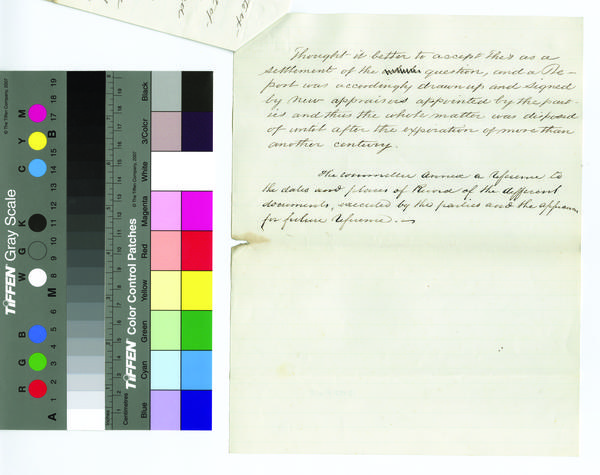 Thought it better to accept this as a
settlement of the question, and a Re-
port was accordingly drawn up and signed
by new appraisers appointed by the part-
ies and thus the whole matter was disposed
of until after the expiration of more than
another century.
The committee annex a reference to
the dates and places of record of the different
documents, executed by the parties and the appraisers
for future reference. —
© The Tiffen Company, 2007
TIFFEN Gray Scale
R G B W G K C Y M
A 1 2 3 4 5 6 M 8 9 10 11 12 13 14 15 B 17 18 19
© The Tiffen Company, 2007
TIFFEN Color Control Patches
Inches
Centimetres
Blue
Cyan
Green
Yellow
Red
Magenta
White
3/Color
Black